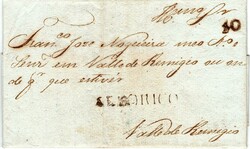 40
Fran.co Joze Nogueira meo S.or
Senr. em Valle de Remigio ou on
de q.r que estivir
ALBORICO
Valle de Remigio